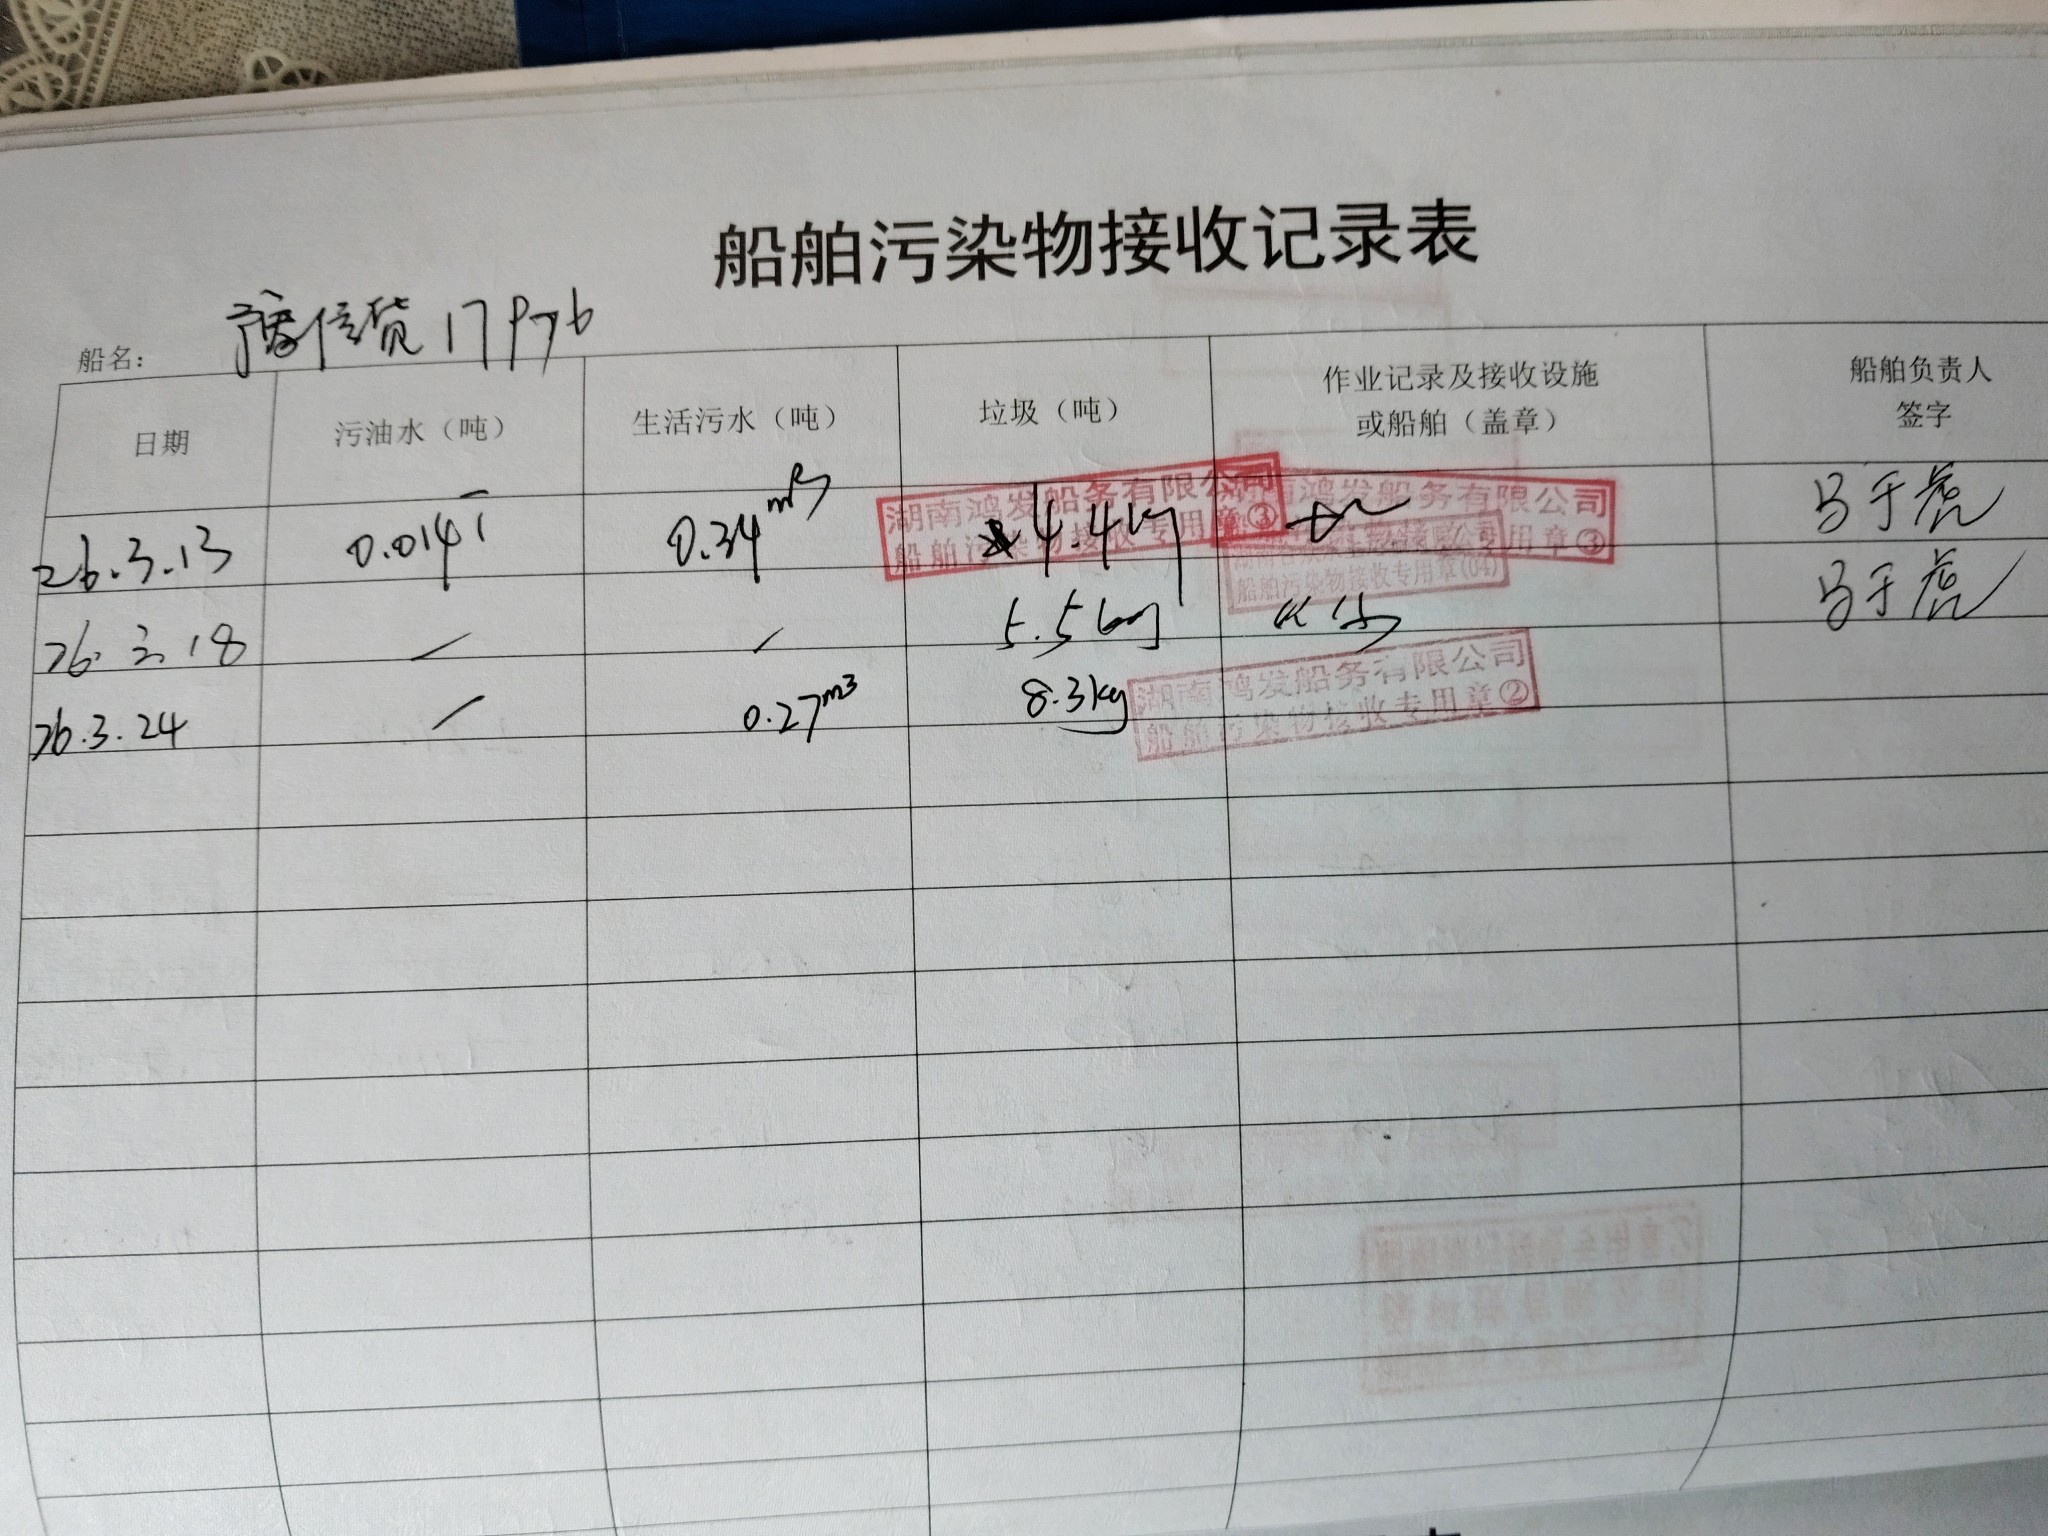 船舶污染物接收记录表
船名： 信货17976
日期 污油水（吨） 生活污水（吨） 垃圾（吨） 作业记录及接收设施或船舶（盖章） 船舶负责人签字
26.3.13 0.014T 0.34m³ 4.4kg 马于虎
湖南鸿发船务有限公司
船舶污染物接收专用章③
湖南鸿发船务有限公司
用章③
船舶污染物接收专用章(04)
26.3.18 / / 5.5kg 马于虎
26.3.24 / 0.27m3 8.3kg
湖南鸿发船务有限公司
船舶污染物接收专用章②